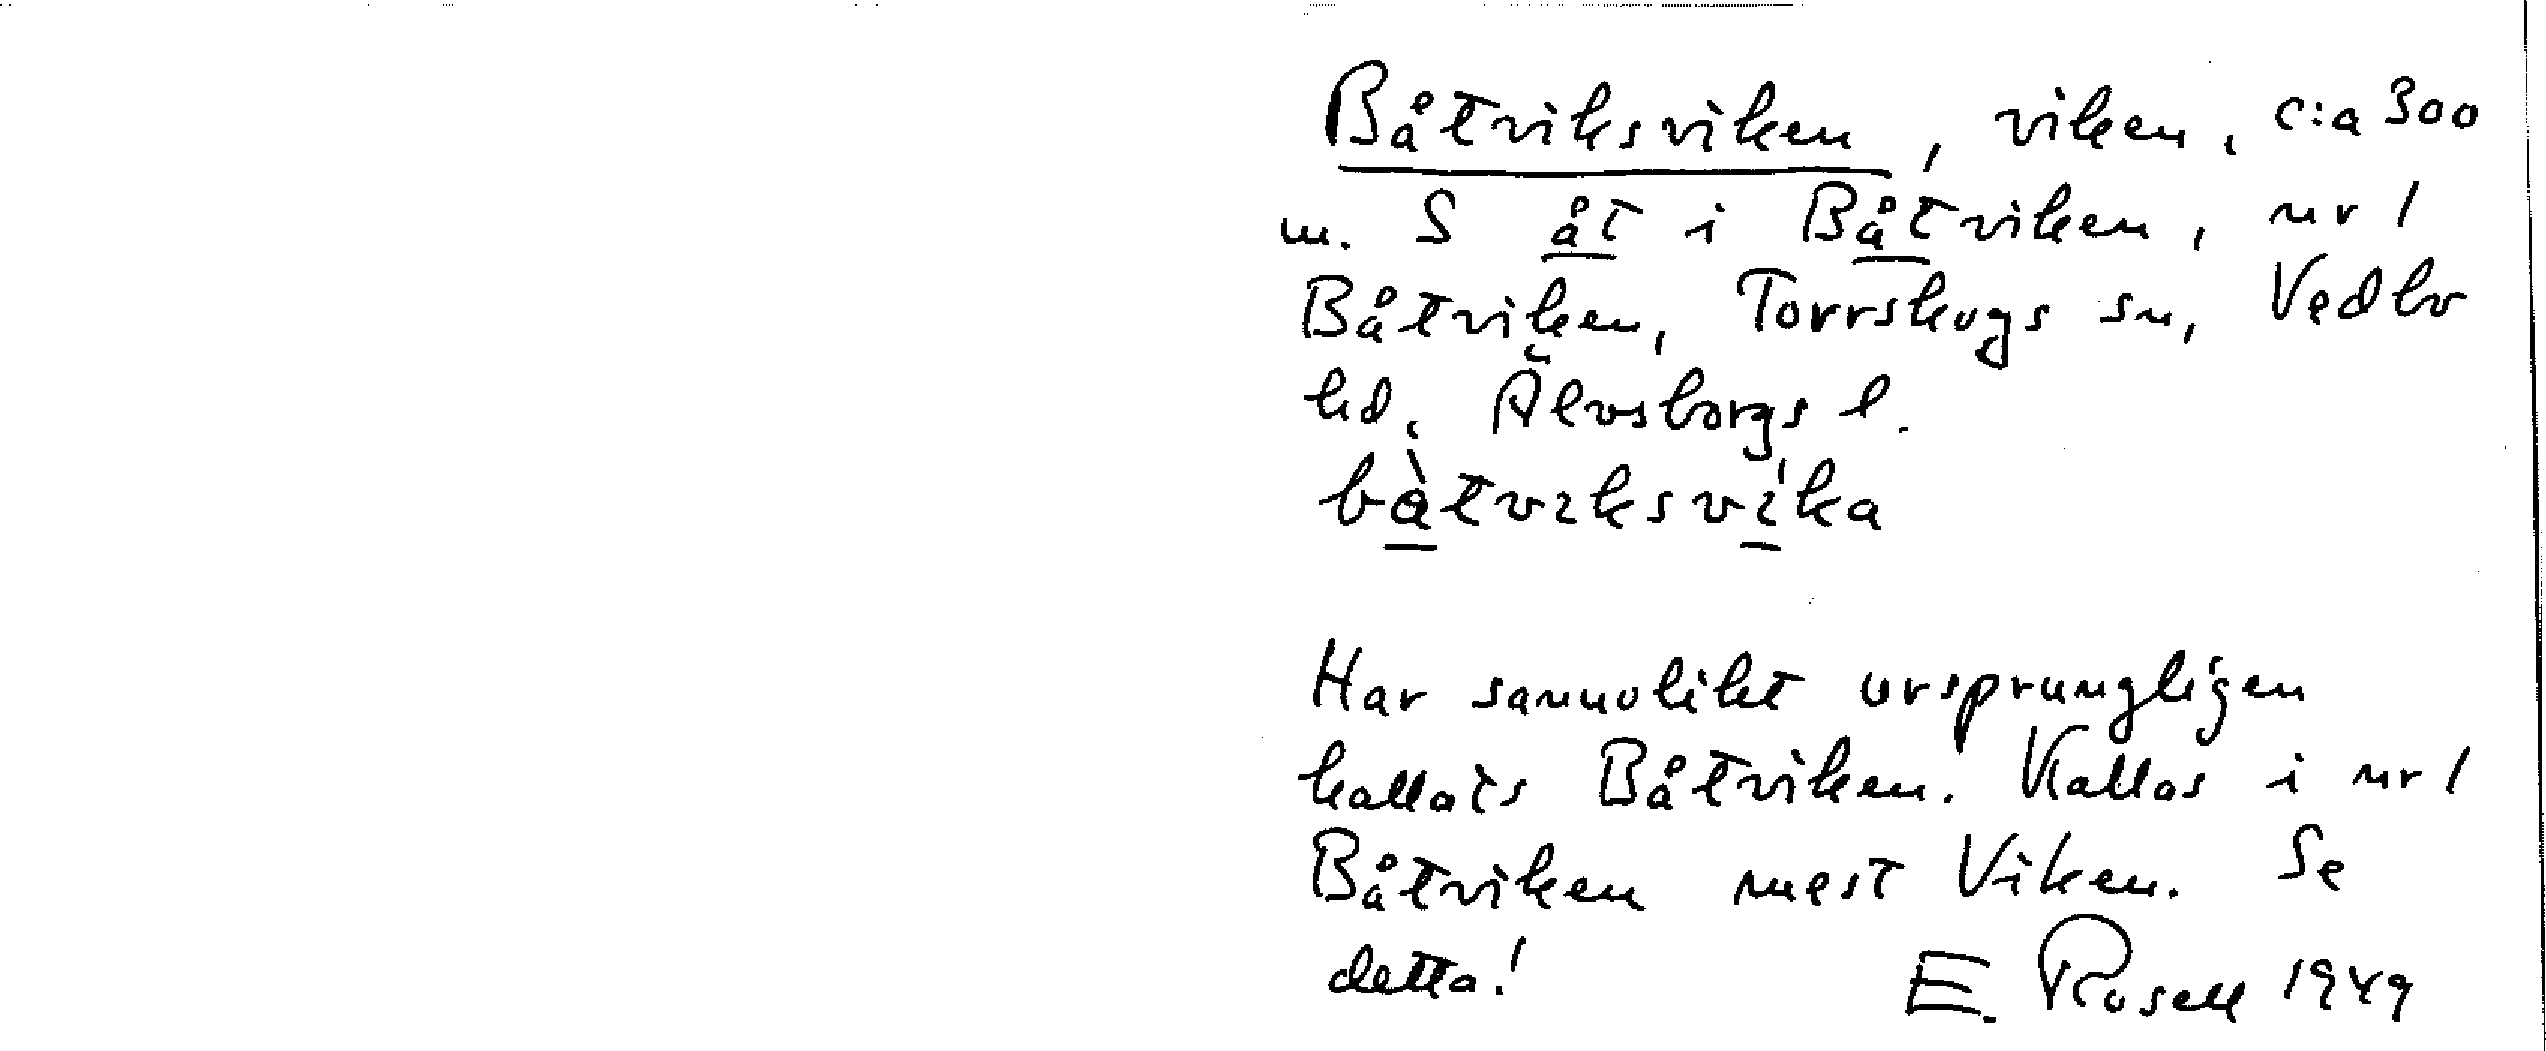 Båtviksviken, viken, c:a 300
m. S åt i Båtviken, nr 1
Båtviken, Torrskogs sn, Vedbo
hd, Älvsborgs l.
bàtvıksvı́ka
Har sannolikt ursprungligen
kallats Båtviken. Kallas i nr 1
Båtviken mest Viken. Se
detta! E. Rosell 1949